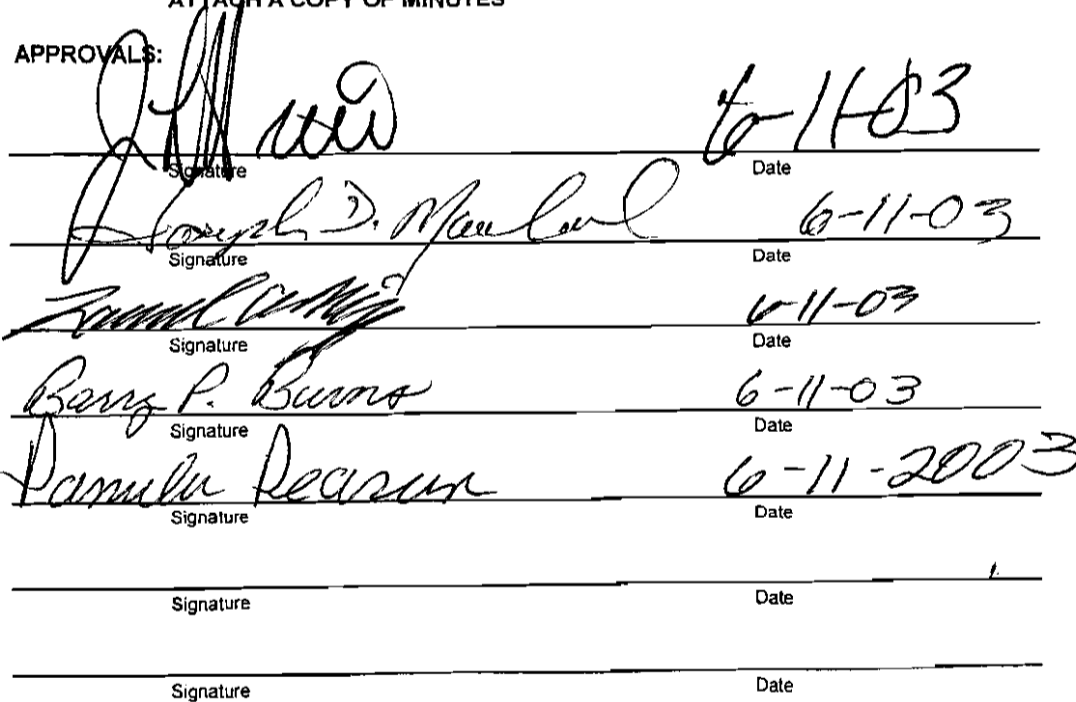 ATTACH A COPY OF MINUTES
APPROVALS:
6-11-03
Signature Date
Joseph D. 6-11-03
Signature Date
6-11-03
Signature Date
Barry P. Burns 6-11-03
Signature Date
Pamela Pearson 6-11-2003
Signature Date
Signature Date
Signature Date